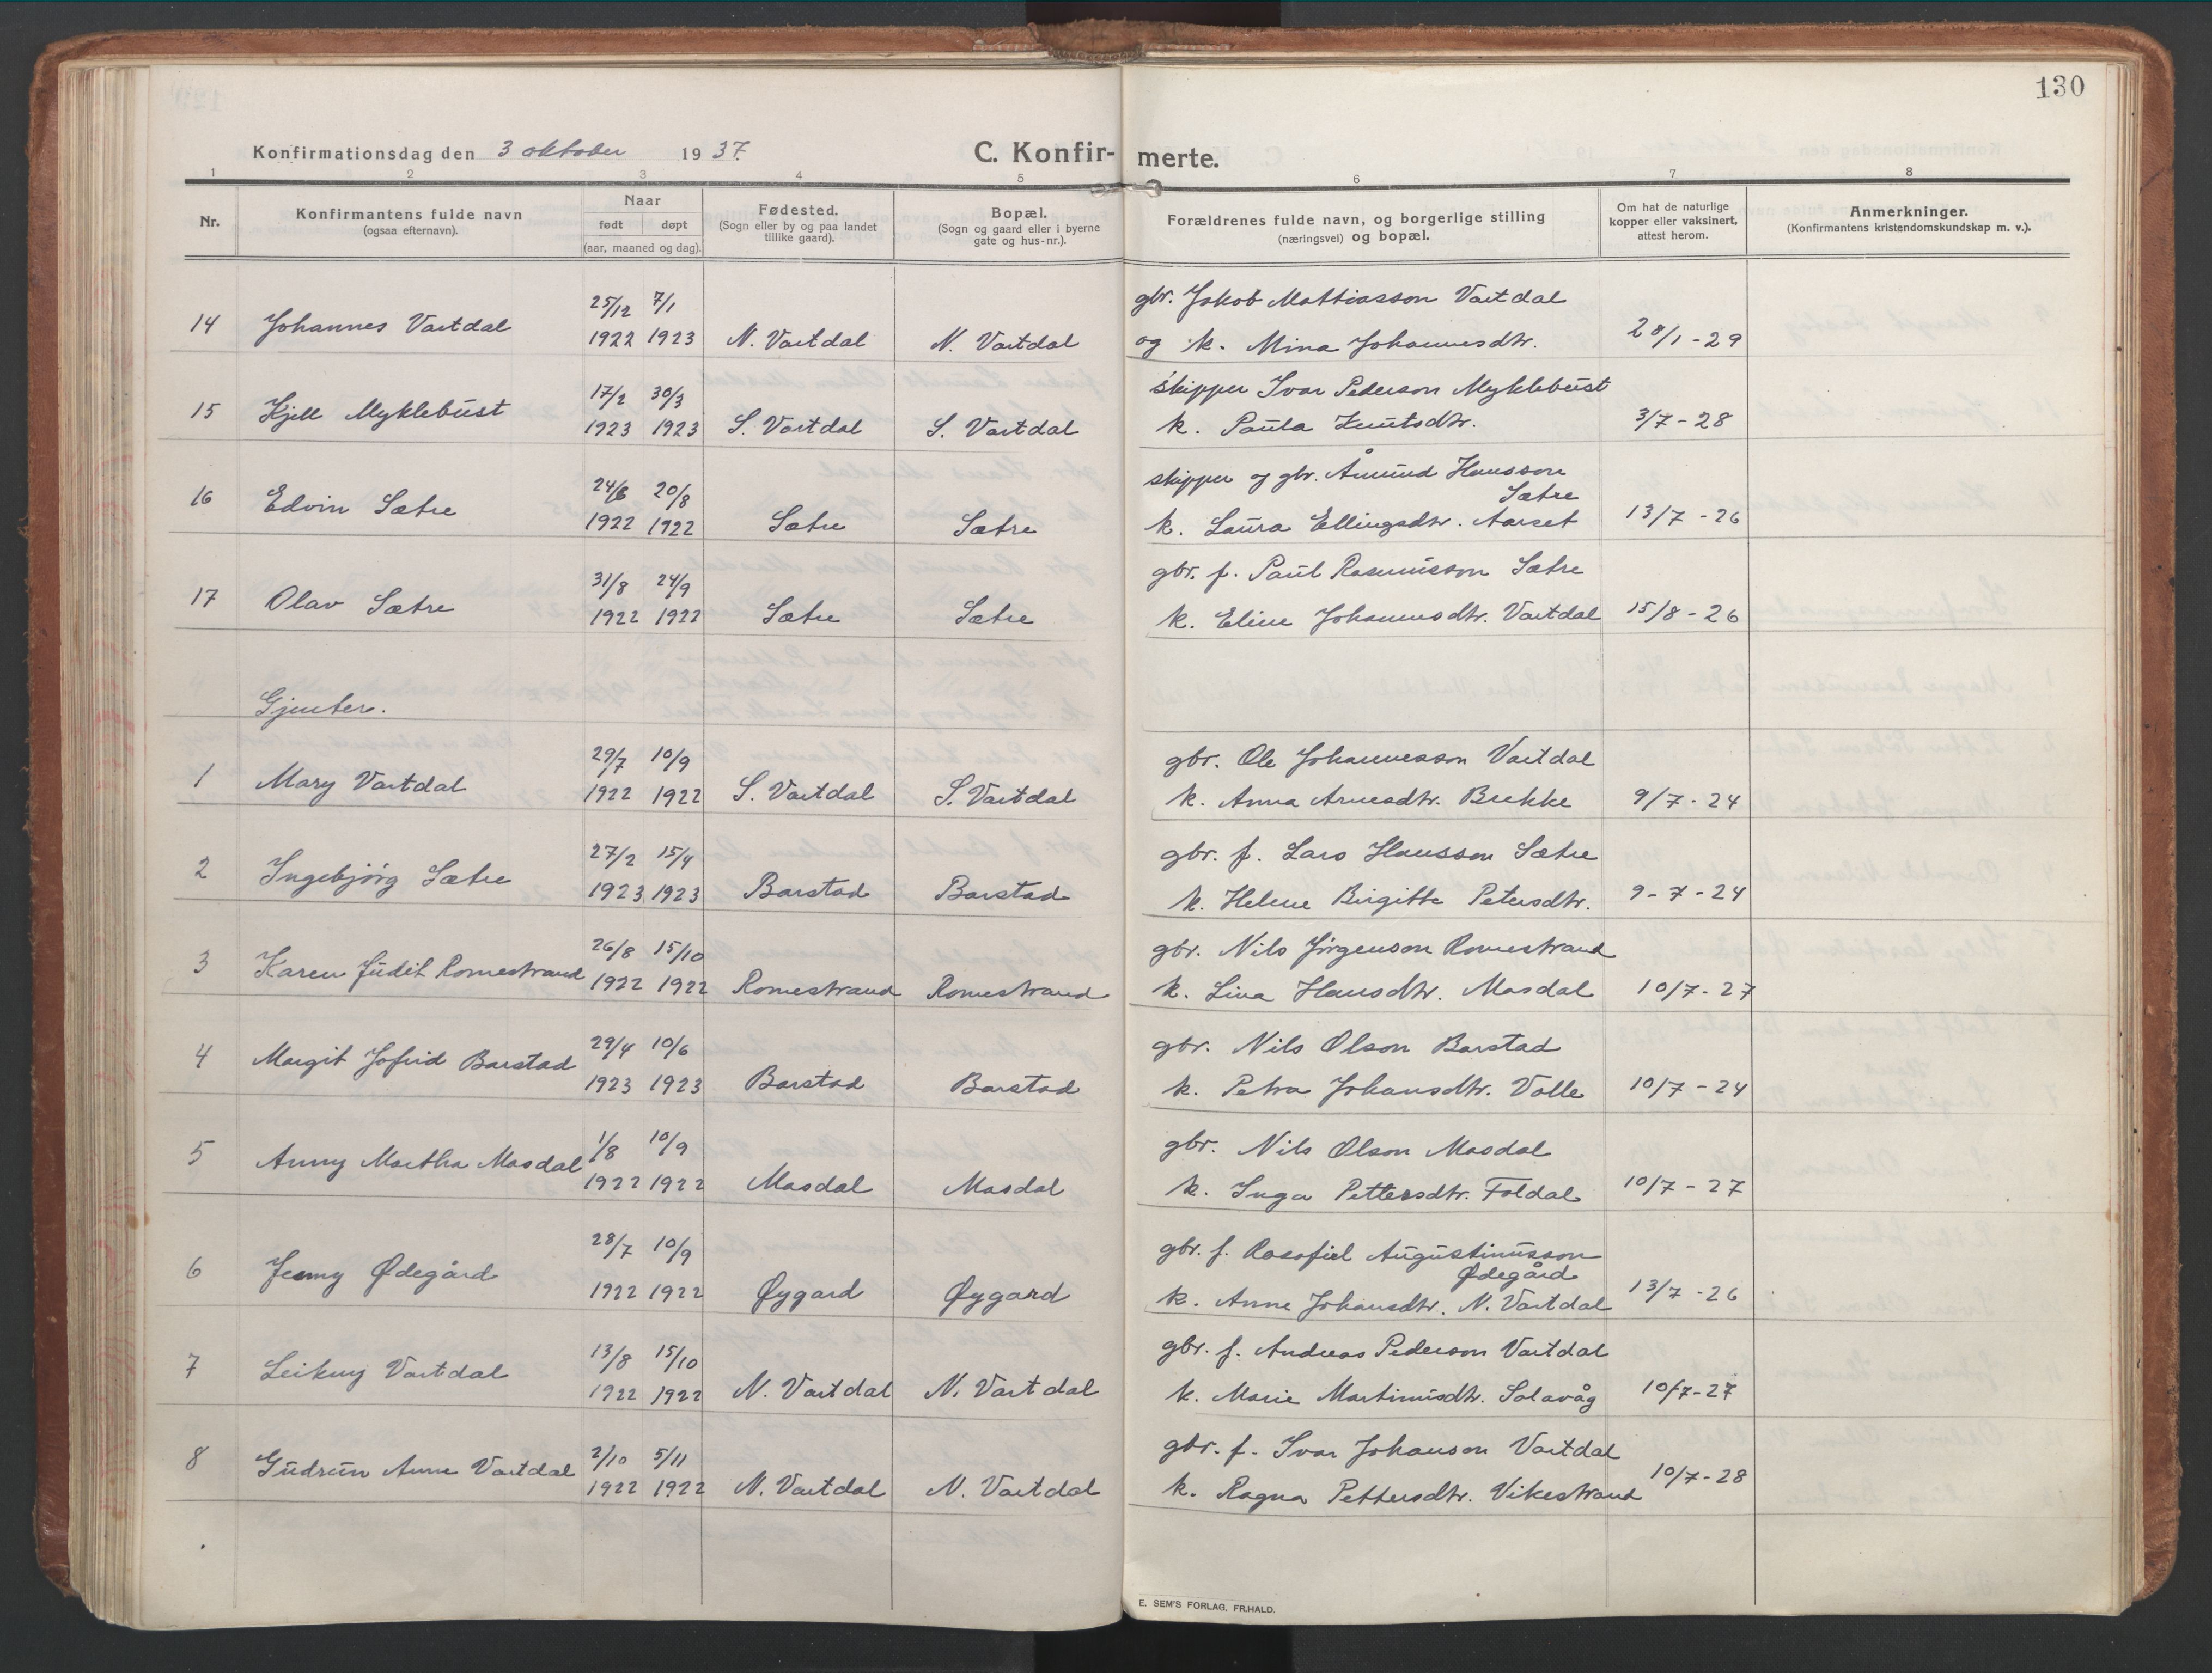 130
Konfirmationsdag den 3 oktober 1937.
C. Konfirmerte.
1 2 3 4 5 6 7 8
Nr.
Konfirmantens fulde navn
(ogsaa efternavn).
Naar
født døpt
(aar, maaned og dag).
Fødested.
(Sogn eller by og paa landet
tillike gaard).
Bopæl.
(Sogn og gaard eller i byerne
gate og hus-nr.).
Forældrenes fulde navn, og borgerlige stilling
(næringsvei) og bopæl.
Om hat de naturlige
kopper eller vaksinert,
attest herom.
Anmerkninger.
(Konfirmantens kristendomskundskap m. v.).
25/12 7/1 gbr. Jakob Mattiasson Vartdal
14 Johannes Vartdal 1922 1923 N. Vartdal N. Vartdal og k. Mina Johannesdtr. 28/1-29
17/2 30/3 skipper Ivar Pederson Myklebust
15 Kjell Myklebust 1923 1923 S. Vartdal S. Vartdal k. Paula Knutsdtr. 3/7-28
24/6 20/8 skipper og gbr. Åmund Hansson
Sætre
16 Edvin Sætre 1922 1922 Sætre Sætre k. Laura Ellingsdtr. Aarset 13/7-26
31/8 24/9 gbr. f. Paul Rasmusson Sætre
17 Olav Sætre 1922 1922 Sætre Sætre k. Eline Johannesdtr. Vartdal 15/8-26
Gjenter.
29/7 10/9 gbr. Ole Johannesson Vartdal
1 Mary Vartdal 1922 1922 S. Vartdal S. Vartdal k. Anna Arnesdtr. Brekke 9/7-24
27/2 15/4 gbr. f. Lars Hansson Sætre
2 Ingebjørg Sætre 1923 1923 Barstad Barstad k. Helene Birgitte Petersdtr. 9-7-24
26/8 15/10 gbr. Nils Jørgenson Romestrand
3 Karen Judit Romestrand 1922 1922 Romestrand Romestrand k. Lina Hansdtr. Masdal 10/7-27
29/4 10/6 gbr. Nils Olson Barstad
4 Margit Jofrid Barstad 1923 1923 Barstad Barstad k. Petra Johansdtr. Valle 10/7-24
1/8 10/9 gbr. Nils Olson Masdal
5 Anny Martha Masdal 1922 1922 Masdal Masdal k. Inga Pettersdtr. Foldal 10/7-27
28/7 10/9 gbr. f. Rasofiel Augustinusson
Ødegård
6 Jenny Ødegård 1922 1922 Øygard Øygard k. Anne Johansdtr. N. Vartdal 13/7-26
13/8 15/10 gbr. f. Andreas Pederson Vartdal
7 Leikny Vartdal 1922 1922 N. Vartdal N. Vartdal k. Marie Martinusdtr. Solavåg 10/7-27
2/10 5/11 gbr. f. Ivar Johanson Vartdal
8 Gudrun Anne Vartdal 1922 1922 N. Vartdal N. Vartdal k. Ragna Pettersdtr. Vikestrand 10/7-28
E. SEM'S FORLAG, FR.HALD.